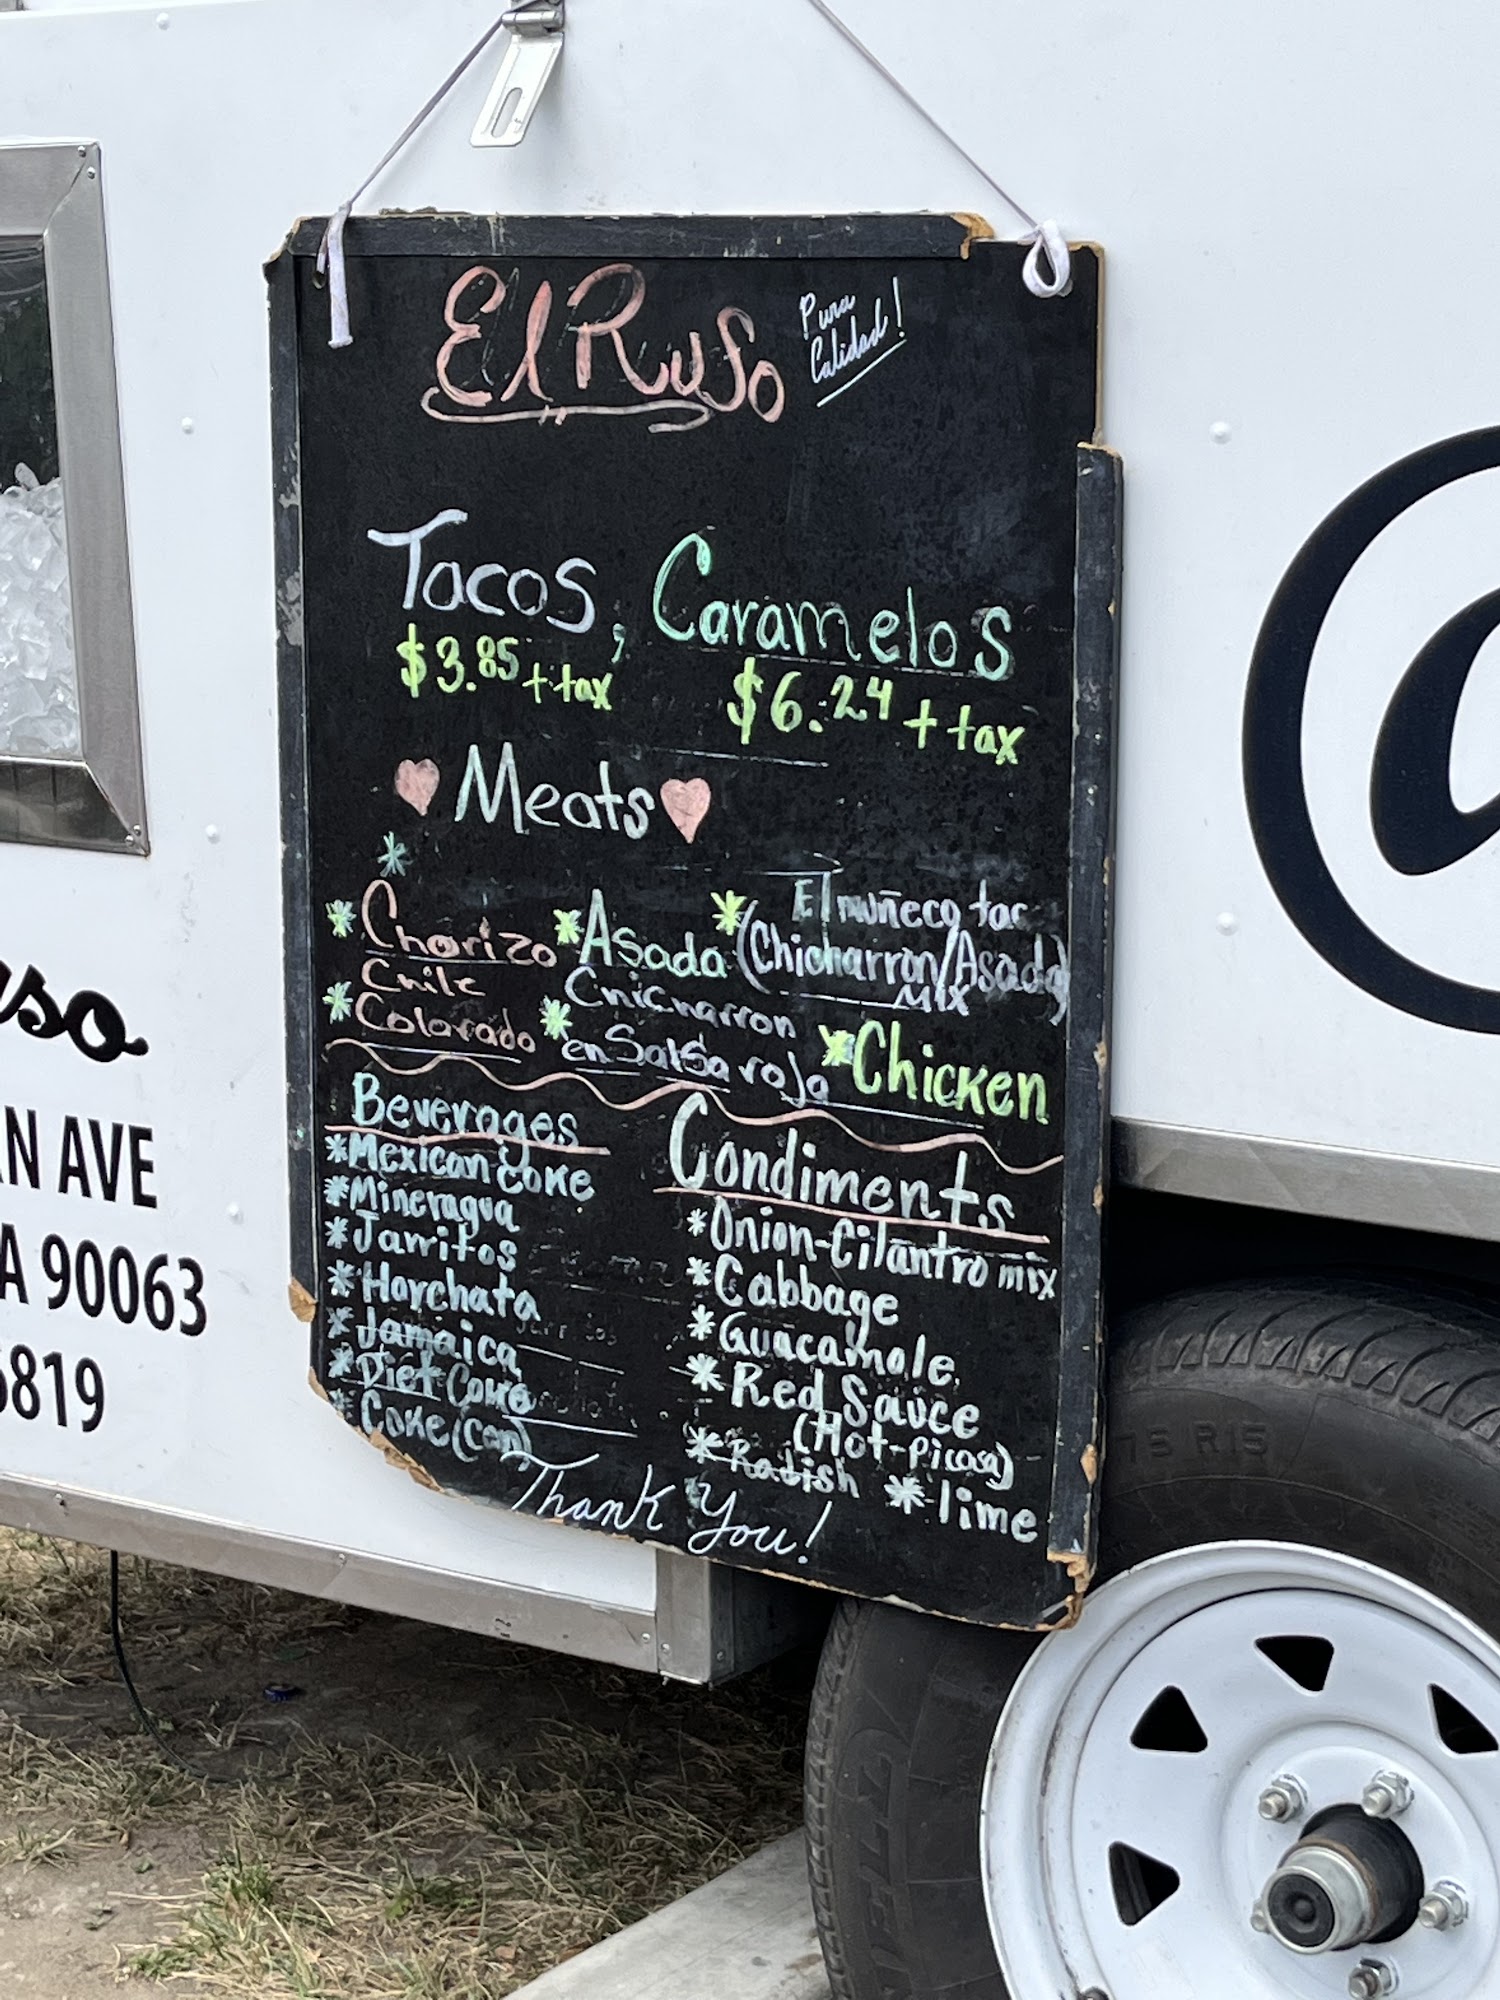 El Ruso
Pura
Calidad!
Tacos, Caramelos
$3.85 + tax
$6.24 + tax
Meats
* Chorizo
* Asada
* El muñeco tac
(Chicharron/Asada)
Mix
* Chile
Colorado
* Chicharron
en Salsa roja
* Chicken
Beverages
* Mexican Coke
* Mineragua
* Jarritos
* Horchata
* Jamaica
* Diet Coke
* Coke (can)
Condiments
* Onion-Cilantro mix
* Cabbage
* Guacamole
* Red Sauce
(Hot-Picosa)
* Radish * lime
Thank You!
uso
N AVE
A 90063
6819
@